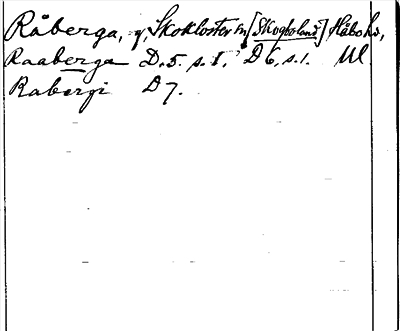 Råberga, g, Skokloster sn [Skogboland] Håbo hd,
Raaberga D. 5. s. 1. D 6. s. 1. Ul.
Rabergi D 7.